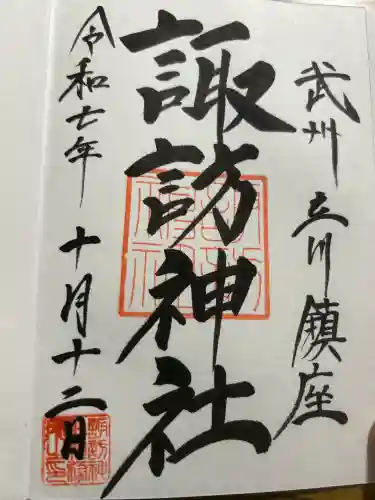 武州 立川 鎮座
諏訪神社
令和七年 十月十二日